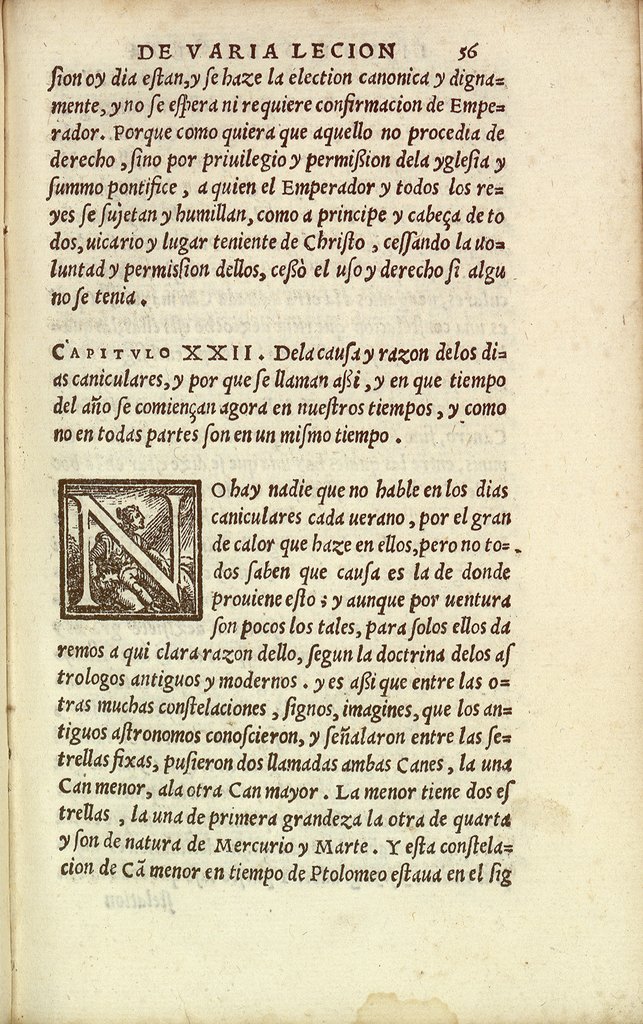 DE VARIA LECION 56
ſion oy dia eſtan, y ſe haze la election canonica y digna=
mente, y no ſe eſpera ni requiere confirmacion de Empe=
rador. Porque como quiera que aquello no procedia de
derecho, ſino por priuilegio y permiſsion dela ygleſia y
ſummo pontifice, a quien el Emperador y todos los re=
yes ſe ſujetan y humillan, como a principe y cabeça de to
dos, uicario y lugar teniente de Chriſto, ceſſando la uo=
luntad y permiſsion dellos, ceſsò el uſo y derecho ſi algu
no ſe tenia.
CAPITVLO XXII. Dela cauſa y razon delos di=
as caniculares, y por que ſe llaman aſsi, y en que tiempo
del año ſe comiençan agora en nueſtros tiempos, y como
no en todas partes ſon en un miſmo tiempo.
NO hay nadie que no hable en los dias
caniculares cada uerano, por el gran
de calor que haze en ellos, pero no to=
dos ſaben que cauſa es la de donde
prouiene eſto; y aunque por uentura
ſon pocos los tales, para ſolos ellos da
remos a qui clara razon dello, ſegun la doctrina delos aſ
trologos antiguos y modernos. y es aſsi que entre las o=
tras muchas conſtelaciones, ſignos, imagines, que los an=
tiguos aſtronomos conoſcieron, y ſeñalaron entre las ſe=
trellas fixas, puſieron dos llamadas ambas Canes, la una
Can menor, ala otra Can mayor. La menor tiene dos eſ
trellas, la una de primera grandeza la otra de quarta
y ſon de natura de Mercurio y Marte. Y eſta conſtela=
cion de Cã menor en tiempo de Ptolomeo eſtaua en el ſig